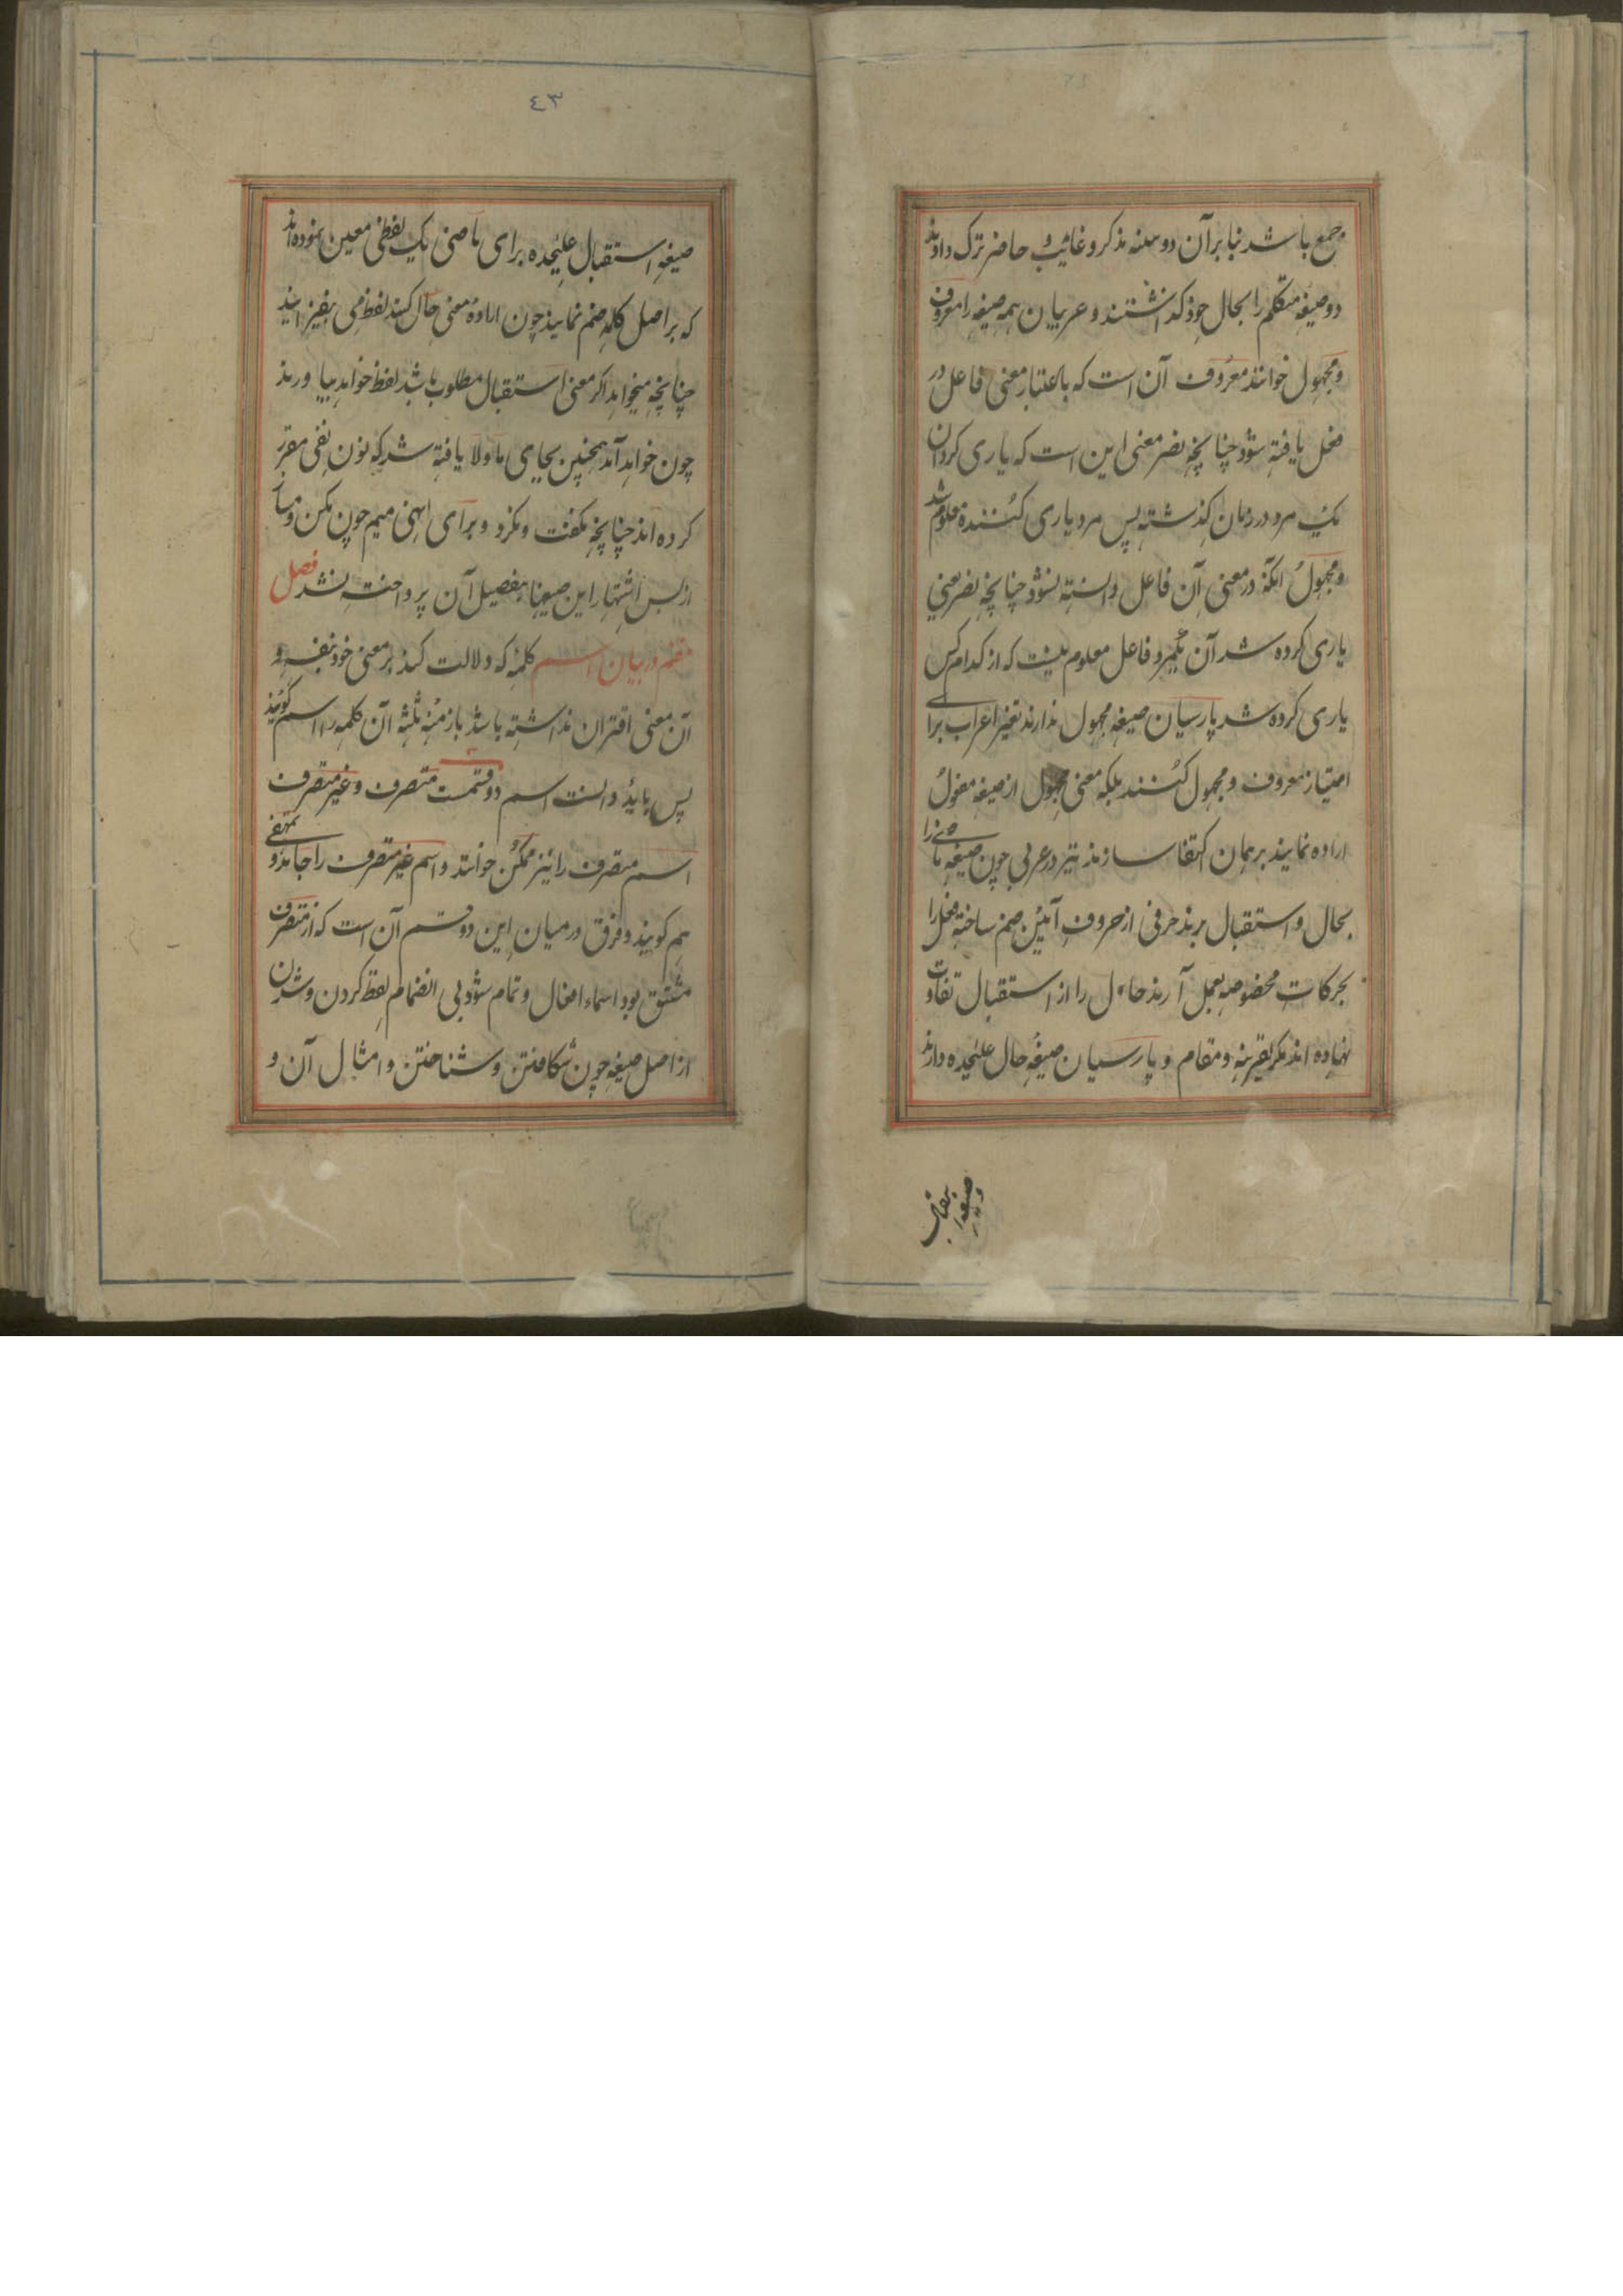 جمع باشد بنابرآن دو صیغه مذکر و غائب و حاضر ترک دادند
دو صیغه متکلم را بحال خود گذاشتند و عربیان همه صیغه را معروف
و مجهول خوانند معروف آن است که باعتبار معنی فاعل در
فعل یافته شود چنانچه نصر معنی این است که یاری کرد آن
یک مرد در زمان گذشته پس مرد یاری کننده معلوم شد
و مجهول آنکه در معنی آن فاعل دانسته نشود چنانچه نصر یعنی
یاری کرده شد آن یکمرد و فاعل معلوم نیست که از کدام کس
یاری کرده شد پارسیان صیغه مجهول ندارند تغیر اعراب برای
امتیاز معروف و مجهول کنند بلکه معنی مجهول از صیغه مفعول
اراده نمایند بر همان اکتفا سازند نیز در عربی چون صیغه ماضی را
بحال و استقبال برند حرفی از حروف آتین ضم ساخته فعل را
بحرکات مخصوصه بعمل آرند حال را از استقبال تفاوت
نهاده اند مگر بقرینه و مقام و پارسیان صیغه حال علیحده دارند
و صیغه استقبال
٤٣
صیغه استقبال علیحده برای ماضی یک لفظی معین نموده اند
که بر اصل کلمه ضم نمایند چون اراده معنی حال کنند لفظ می بفیزایند
چنانچه میخواند اگر معنی استقبال مطلوب باشد لفظ خواهد بیاورند
چون خواهد آمد همچنین بجای ما و لا یافته شد که نون نفی مقرر
کرده اند چنانچه نگفت و نکرد و برای نهی میم چون مکن و
از بس اشتهار این صیغها بتفصیل آن پرداخته نشد فصل
هفتم در بیان اسم کلمه که دلالت کند بر معنی خود بنفسه و
آن معنی اقتران نداشته باشد بازمنه ثلثه آن کلمه را اسم گویند
پس باید دانست اسم دو قسمت متصرف و غیر متصرف
اسم متصرف را نیز ممکن خوانند و اسم غیر متصرف را جامد و
هم گویند و فرق درمیان این دو قسم آن است که از متصرف
مشتق بود اسماء افعال و تمام شود بی انضمام لفظ کردن و شدن
از اصل صیغه چون شکافتن و شناختن و امثال آن و